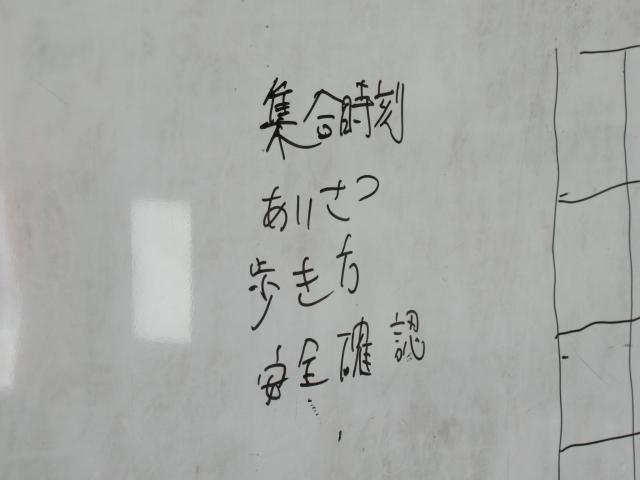 集合時刻
あいさつ
歩き方
安全確認